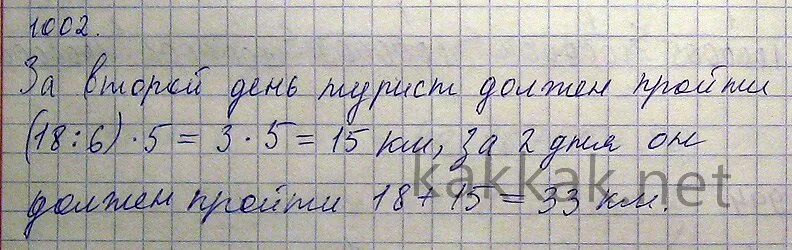 1002.
За второй день турист должен пройти
(18:6)·5 = 3·5 = 15 км, За 2 дня он
должен пройти 18 + 15 = 33 км.
kakkak.net